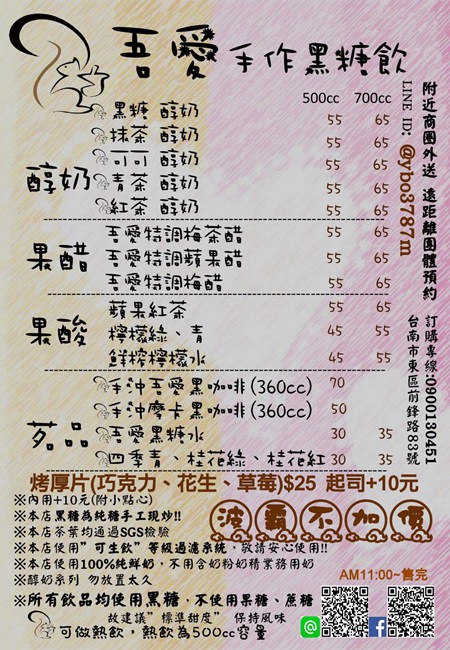 吾愛 手作黑糖飲
500cc 700cc
醇奶
黑糖 醇奶 55 65
抹茶 醇奶 55 65
可可 醇奶 55 65
青茶 醇奶 55 65
紅茶 醇奶 55 65
果醋
吾愛特調梅茶醋 55 65
吾愛特調蘋果醋 55 65
吾愛特調梅醋 55 65
果酸
蘋果紅茶 55 65
檸檬綠、青 45 55
鮮榨檸檬水 45 55
茗品
手沖吾愛黑咖啡(360cc) 70
手沖摩卡黑咖啡(360cc) 50
吾愛黑糖水 30 35
四季青、桂花綠、桂花紅 30 35
附近商圈外送 遠距離團體預約
LINE ID: @ybo3787m
訂購專線:0900130451
台南市東區前鋒路83號
烤厚片(巧克力、花生、草莓)$25 起司+10元
※內用+10元(附小點心)
※本店黑糖為純糖手工現炒!!
※本店茶葉均通過SGS檢驗
※本店使用"可生飲"等級過濾系統，敬請安心使用!!
※本店使用100%純鮮奶，不用含奶粉奶精業務用奶
※醇奶系列 勿放置太久
波霸不加價
AM11:00~售完
※所有飲品均使用黑糖，不使用果糖、蔗糖
故建議"標準甜度" 保持風味
可做熱飲，熱飲為500cc容量